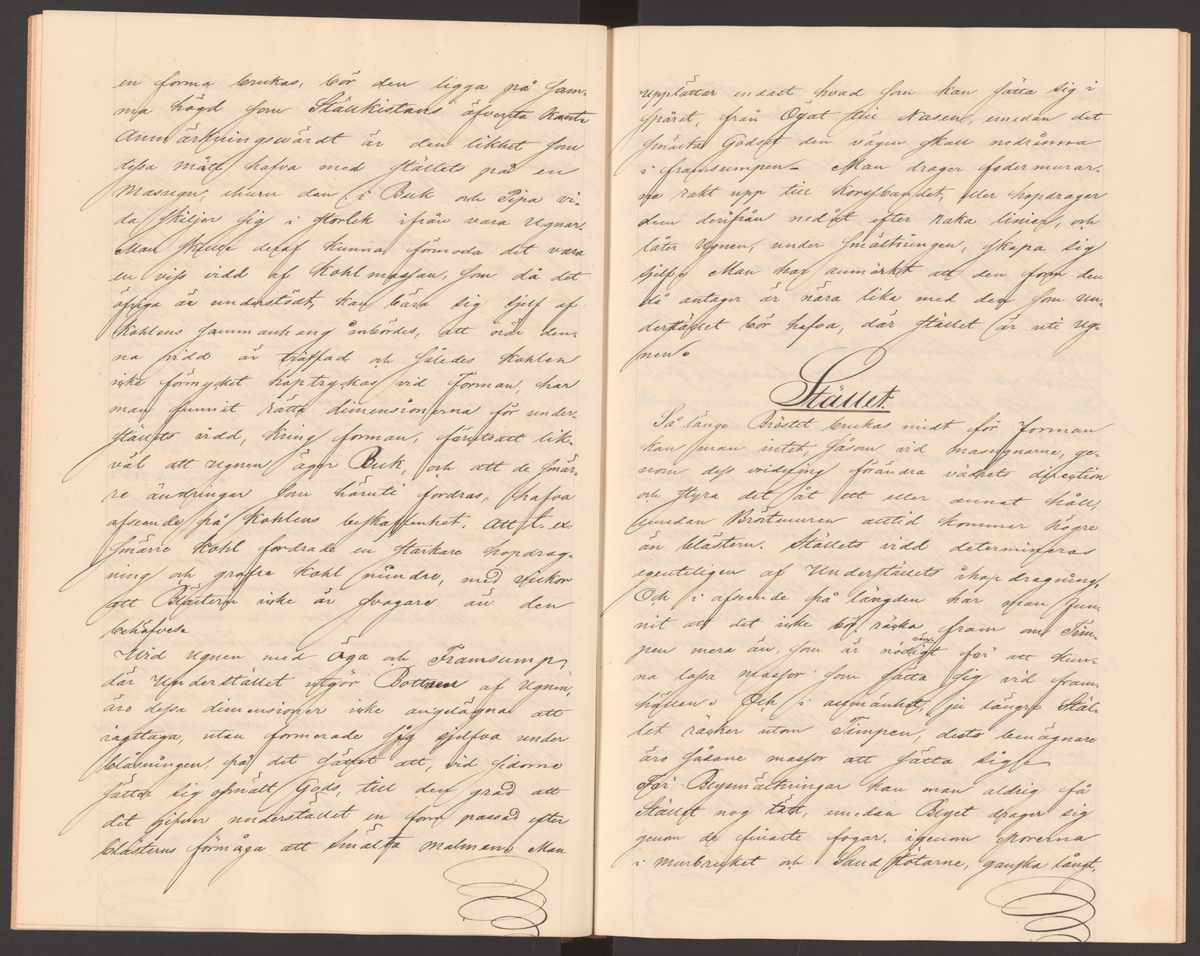 en forma brukas, bör den ligga på sam-
ma högd som Stänkistans öfversta kant.
Anmärkningswärdt är den likhet som
dessa mått hafva med ställets på en
Masugn, ehuru den i Buk och Pipa vi-
da skiljer sig i storlek ifrån våra ugnar.
Man skulle deraf kunna förmoda det vara
en viss vidd af Kohlmassan, som då det
öfriga är understödt, kan bära sig sjelf af
Kohlens sammanhang inbördes, att när den-
na vidd är träffad och således Kohlen
icke förmycket hoptryckas vid Forman, har
man funnit rätta dimensionerna för under-
ställets vidd, kring forman, förutsatt lik-
väl att ugnen äger Buk, och att de smär-
re ändringar som häruti fordras, hafva
afseende på Kohlens beskaffenhet. Att t. ex.
smärre Kohl fordrade en starkare hopdrag-
ning och grofre Kohl mindre, med vilkor
att Blästern icke är svagare än den
behöfves.
Wid ugnen med Öga och Framsump,
där Understället utgör Bottnen af Ugnen,
äro dessa dimensioner icke angelägna att
iagttaga, utan formerade sig sjelfva under
blåsningen, på det sättet att, vid sidorne
sätter sig osmält Gods, till den grad att
det gifver understället en form passad efter
blästerns förmåga att smälta malmen. Man
upplåttar endast hvad som kan sätta sig i
spåret, från Ögat till Nasen, emedan det
smälta Godset den vägen skall nedrinna
i framsumpen. Man drager fodermurar-
ne rakt upp till Korsbandet, eller hopdrager
dem derifrån nedåt efter raka linien, och
låter Ugnen, under smältningen, skapa sig
sjelf. Man har anmärkt att den form den
då antager är nära lika med den som un-
derstället bör hafva, där stället är uti Ug-
nen.
Stället.
Så länge Bröstet brukas midt för Forman
kan man intet, såsom vid masugnarne, ge-
nom dess vridning förändra vädrets direction
och styra det åt ett eller annat håll,
emedan Bröstmuren alltid kommer högre
än blästern. Ställets vidd determineras
egenteligen af Underställets ihopdragning.
Och i afseende på längden har man fun-
nit att det icke bör räcka fram om Tim-
pen mera än, som är nödigt för att kun-
na lossa massor som sätta sig vid fram-
hällen. Och i allmänhet, ju längre Stäl-
let räcker utom Timpen, desto benägnare
äro sådane massor att sätta sig.
För Blysmältningar kan man aldrig få
Stället nog tätt, emedan Blyet drager sig
genom de finaste fogar, igenom porerna
i murbruket och Sandstötarne, ganska långt,